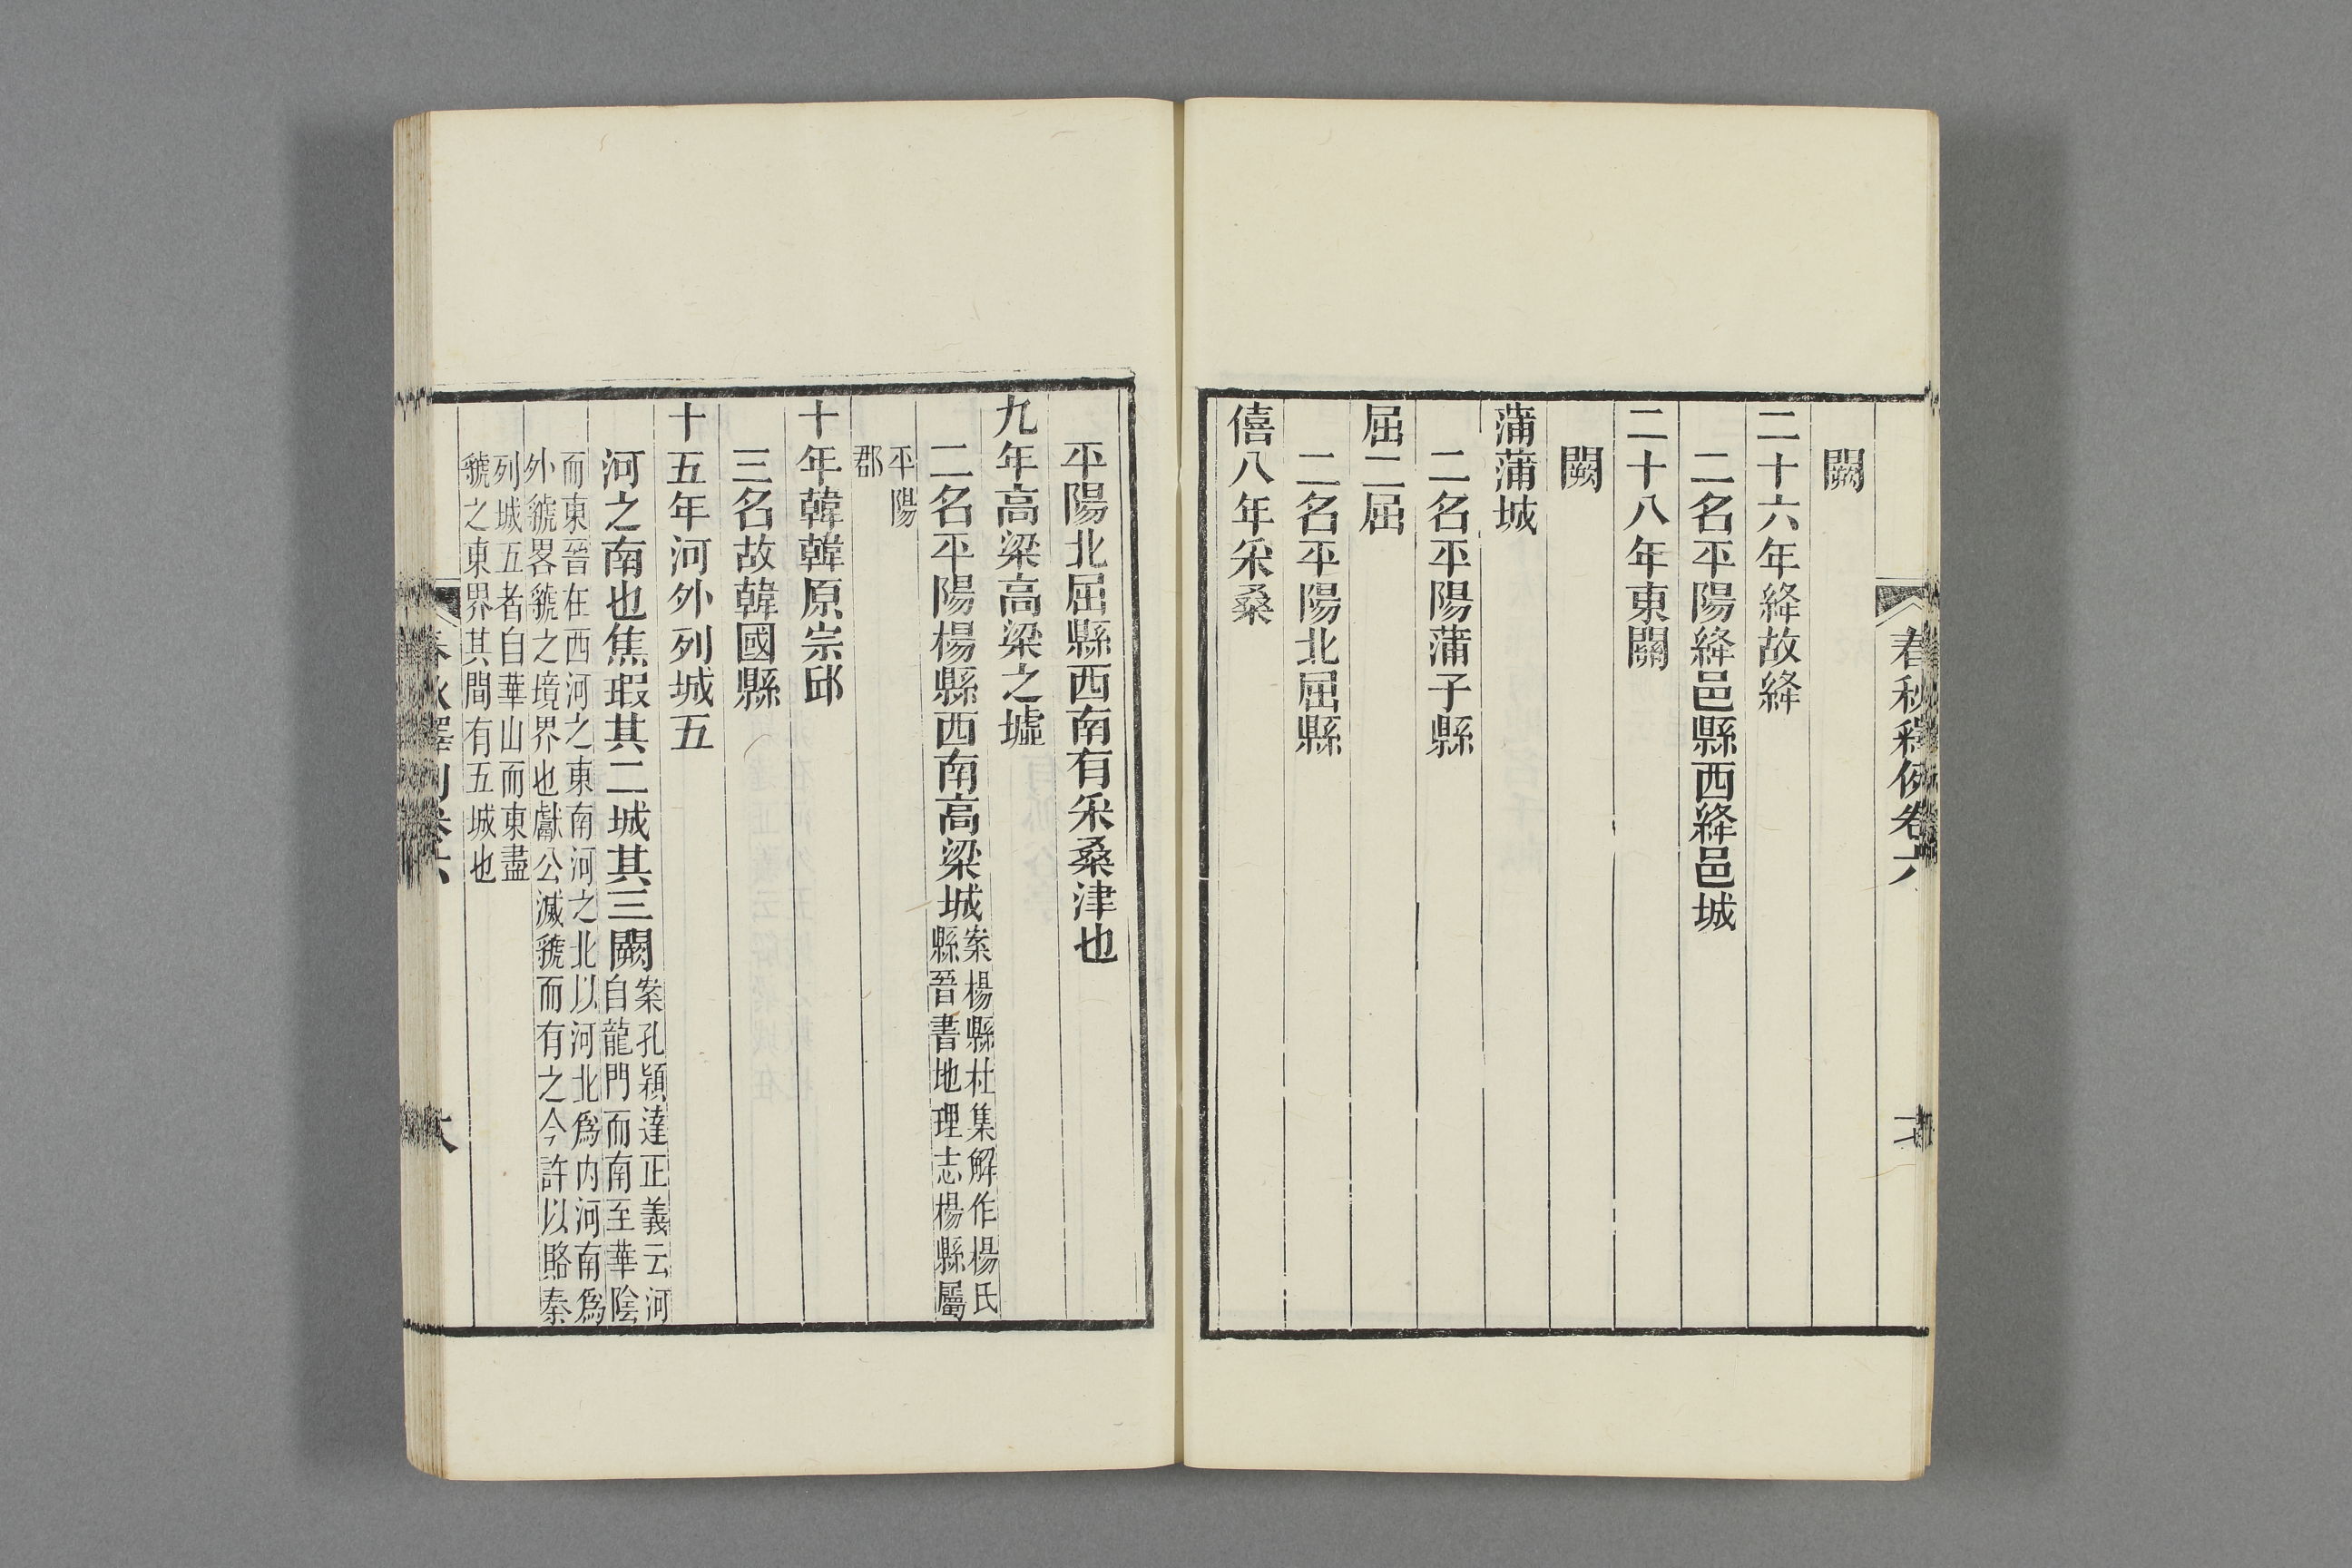 春秋釋例卷六
闕
二十六年絳故絳
二名平陽絳邑縣西絳邑城
二十八年東關
闕
蒲蒲城
二名平陽蒲子縣
屈二屈
二名平陽北屈縣
僖八年采桑
平陽北屈縣西南有采桑津也
九年高梁高梁之墟
二名平陽楊縣西南高梁城案楊縣杜集解作楊氏
縣晉書地理志楊縣屬
平陽
郡
十年韓韓原宗邱
三名故韓國縣
十五年河外列城五
河之南也焦瑕其二城其三闕案孔穎達正義云河
自龍門而南至華陰
而東晉在西河之東南河之北以河北爲內河南爲
外虢畧虢之境界也獻公滅虢而有之今許以賂秦
列城五者自華山而東盡
虢之東界其間有五城也